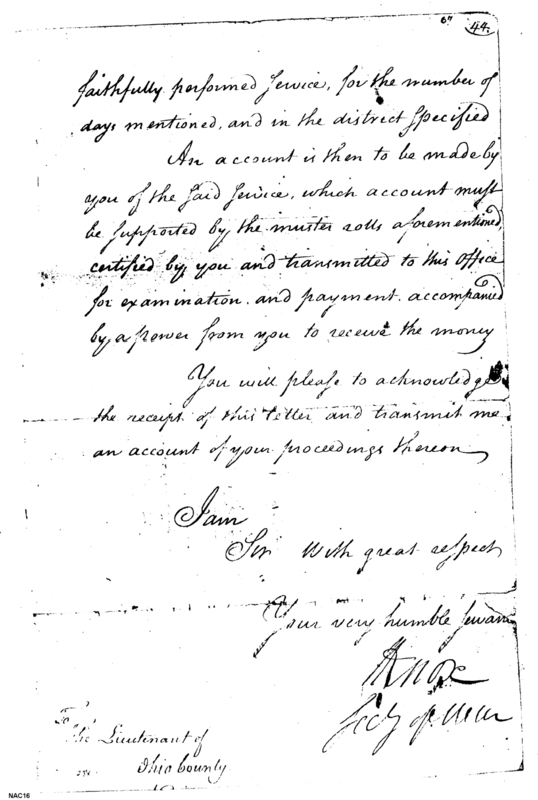 6"
44.
faithfully performed service, for the number of
days mentioned, and in the district specified
An account is then to be made by
you of the said service, which account must
be supported by the muster rolls aforementioned
certified by you and transmitted to this office
for examination. and payment. accompanied
by a power from you to receive the money
You will please to acknowledge
the receipt of this letter and transmit me
an account of your proceedings thereon
I am
Sir With great respect
Your very humble servant
HKnox
Secy of War
To
The Lieutenant of
Ohio County
NAC16